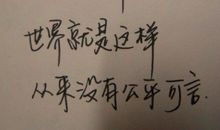 世界就是这样
从来没有公平可言.